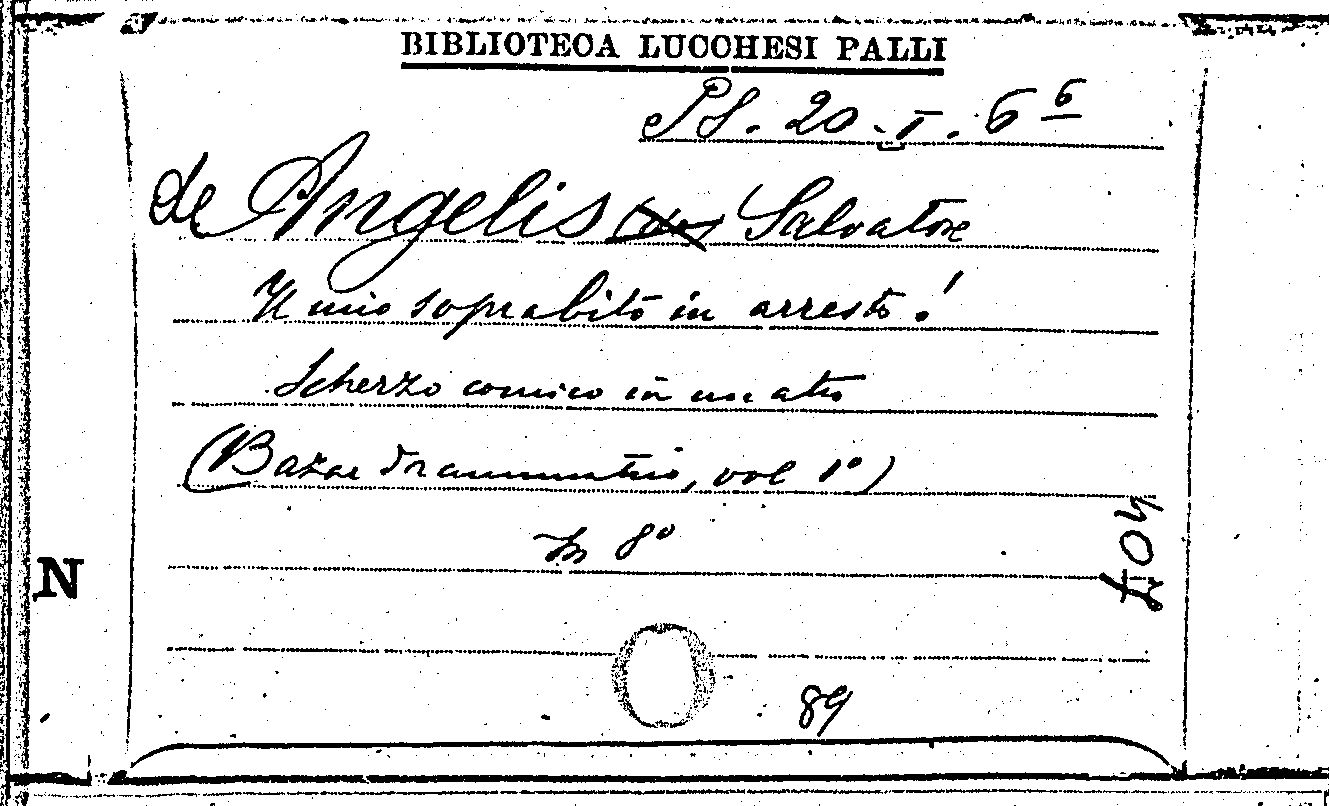 BIBLIOTECA LUCCHESI PALLI
PS. 20. I. 6 6
de Angelis Salvatore
Il mio soprabito in arresto!
Scherzo comico in un atto
(Bazar drammatico, vol 1°)
In 8°
N
89